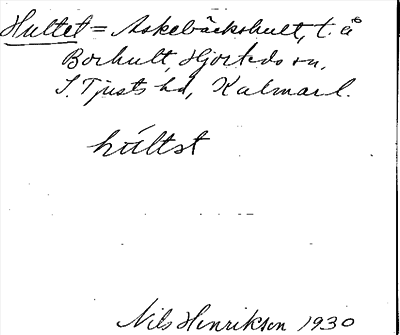 Hultet = Askebäckshult, t. å
Borhult, Hjorteds sn,
S. Tjusts hd, Kalmar l.
húltət
Nils Henrikson 1930